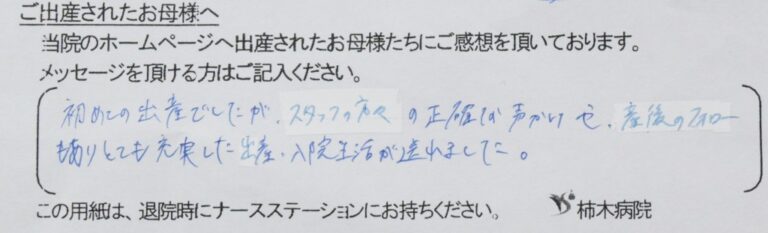 ご出産されたお母様へ
当院のホームページへ出産されたお母様たちにご感想を頂いております。
メッセージを頂ける方はご記入ください。
初めての出産でしたが、スタッフの方々の正確な声かけや、産後のフォロー
もありとても充実した出産・入院生活が送れました。
この用紙は、退院時にナースステーションにお持ちください。 柿木病院